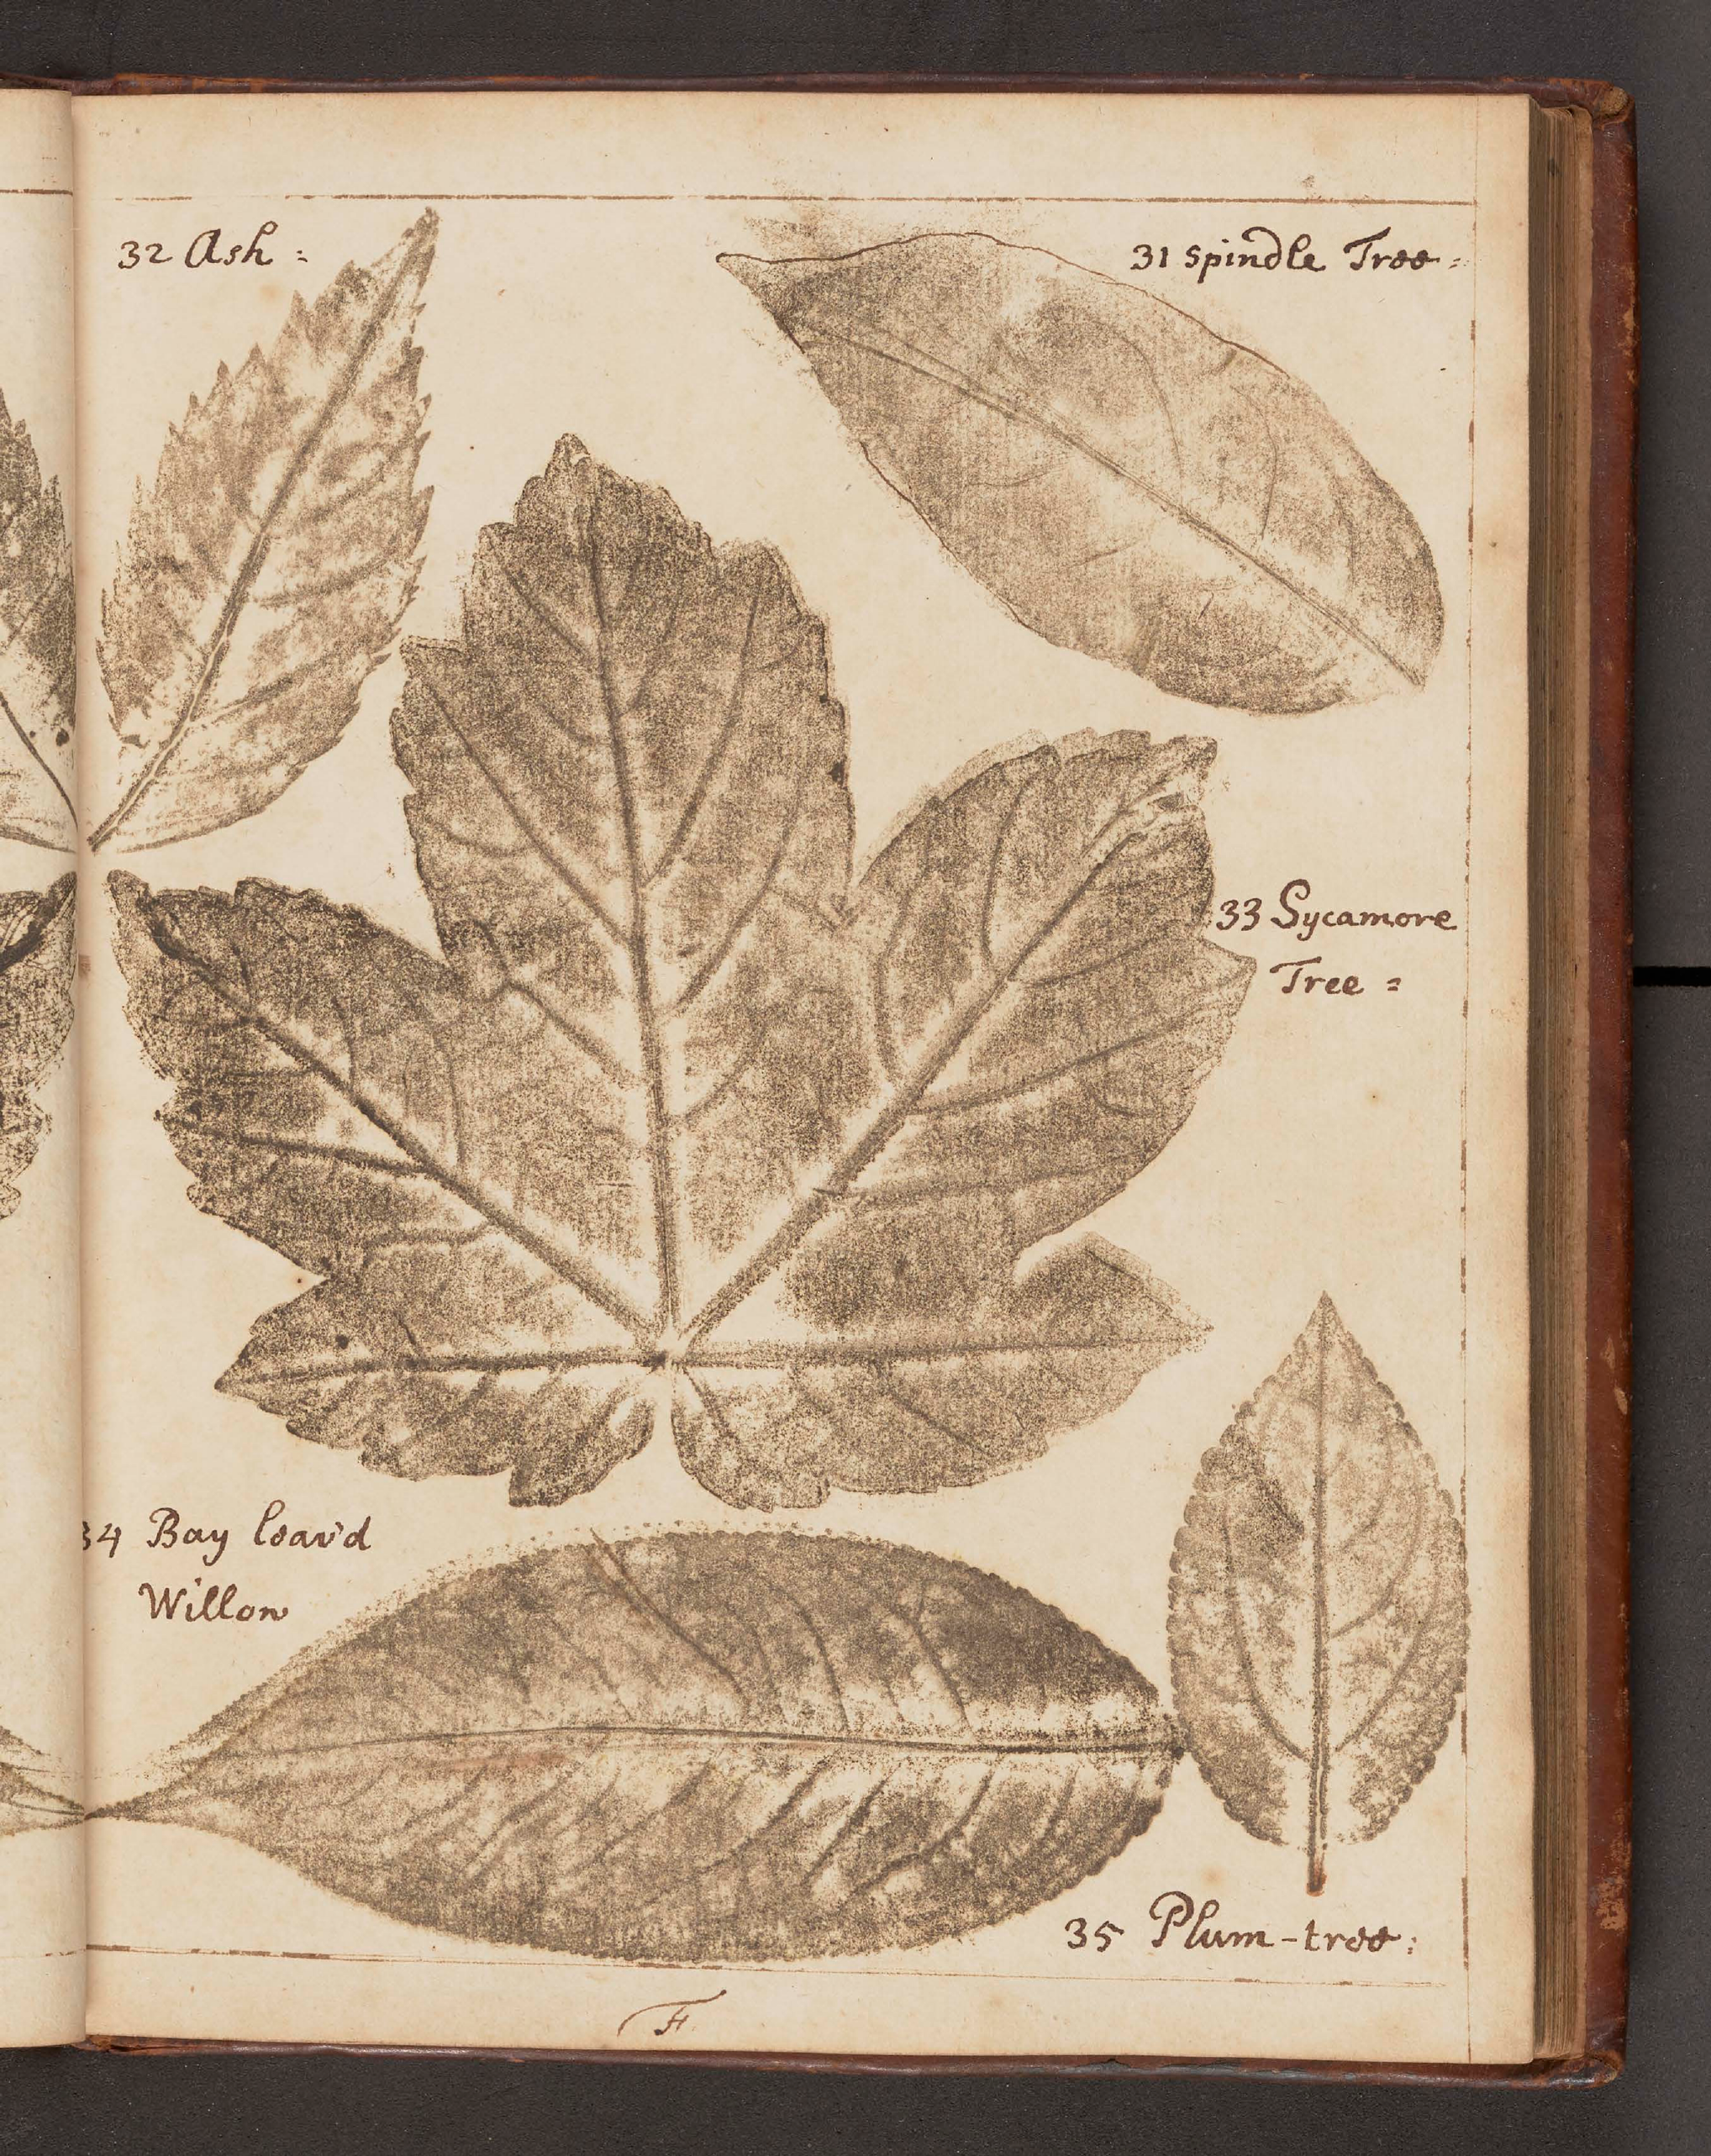 32 Ash :
31 spindle Tree =
33 Sycamore
Tree =
34 Bay leav'd
Willow
35 Plum-tree :
F